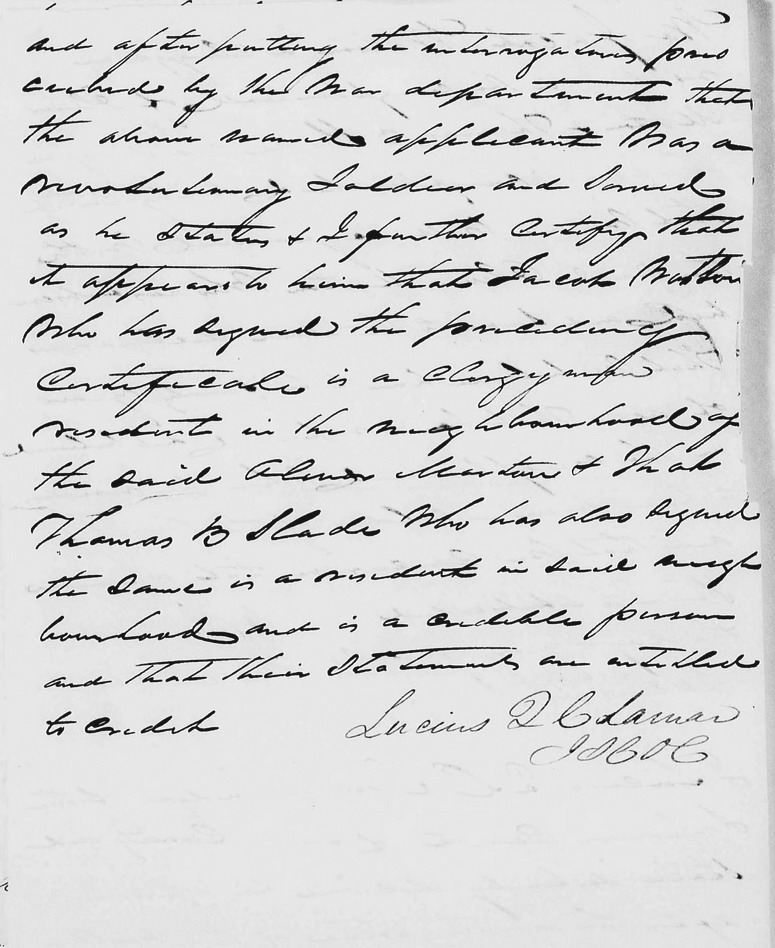 and after putting the interrogatories pres
cribed by the War department that
the above named applicant was a
revolutionary Soldier and Served
as he States & I further Certify that
it appears to him that Jacob
who has signed the preceding
Certificate is a Clergyman
resident in the neighbourhood of
the said Abner Martin & that
Thomas B Slade who has also signed
the same is a resident in said neigh
bourhood and is a credible person
and that their Statements are entitled
to credit
Lucius Q C Lamar
JSCOC